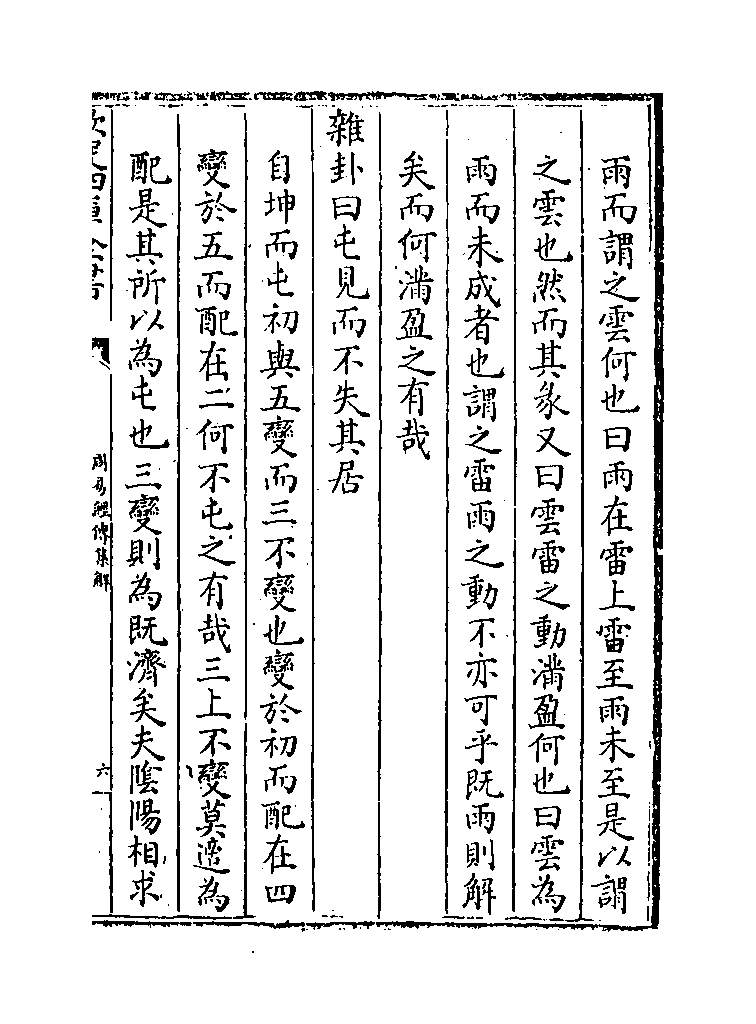 雨而謂之雲何也曰雨在雷上雷至雨未至是以謂
之雲也然而其彖又曰雲雷之動滿盈何也曰雲為
雨而未成者也謂之雷雨之動不亦可乎既雨則解
矣而何滿盈之有哉
雜卦曰屯見而不失其居
自坤而屯初與五變而三不變也變於初而配在四
變於五而配在二何不屯之有哉三上不變莫適為
配是其所以為屯也三變則為既濟矣夫陰陽相求
周易經傳集解
六